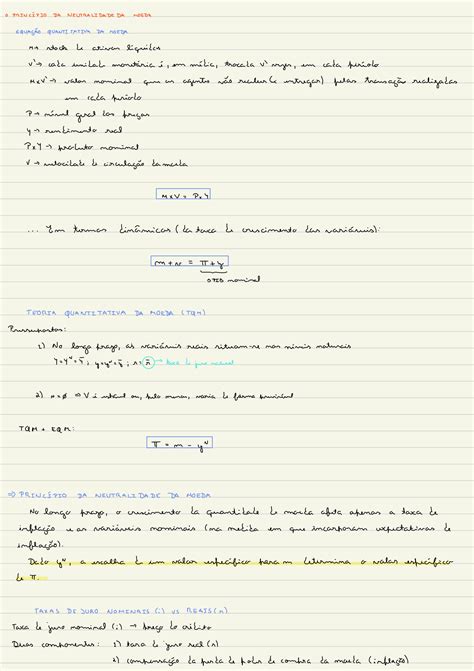 O PRINCÍPIO DA NEUTRALIDADE DA MOEDA
EQUAÇÃO QUANTITATIVA DA MOEDA
M → stock de ativos líquidos
V' → cada unidade monetária é, em média, trocada V' vezes, em cada período
M x V' → valor nominal que os agentes vão receber (e entregar) pelas transações realizadas
em cada período
P → nível geral dos preços
Y → rendimento real
P x Y → produto nominal
V → velocidade de circulação da moeda
M x V = P x Y
... Em termos dinâmicos (da taxa de crescimento das variáveis):
m + v = π + y
nominal
TEORIA QUANTITATIVA DA MOEDA (TQM)
Pressupostos:
1) No longo prazo, as variáveis reais situam-se nos níveis naturais
→ taxa de juro natural
2) v = ø ⇔ V é estável ou, pelo menos, varia de forma previsível
TQM + EQM:
π = m - yᴺ
⇒ PRINCÍPIO DA NEUTRALIDADE DA MOEDA
No longo prazo, o crescimento da quantidade de moeda afeta apenas a taxa de
inflação e as variáveis nominais (na medida em que incorporam expectativas de
inflação).
Dado yᴺ, a escolha de um valor específico para m determina o valor específico
de π.
TAXAS DE JURO NOMINAIS (i) VS REAIS (r)
Taxa de juro nominal (i) → preço do crédito
Duas componentes: 1) taxa de juro real (r)
2) compensação da perda de poder de compra da moeda (inflação)